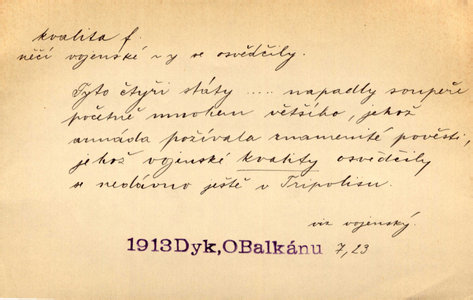 kvalita f.
něčí vojenské ~y se osvědčily.
Tyto čtyři státy ..... napadly soupeře
početně mnohem většího, jehož
armáda požívala znamenité pověsti,
jehož vojenské kvality osvědčily
se nedávno ještě v Tripolisu.
viz vojenský.
1913 Dyk, O Balkánu 7,23